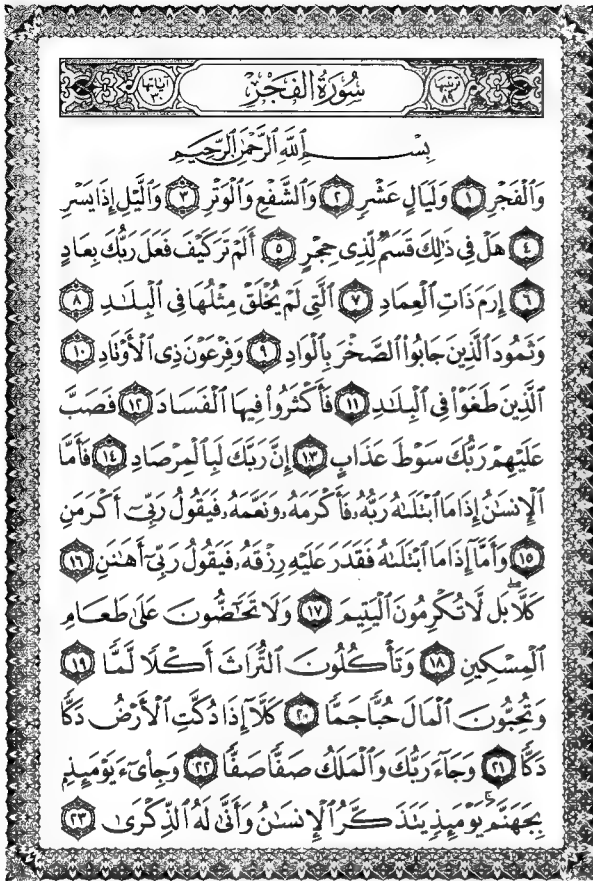 ترتيبها ٨٩ سُورَةُ الفَجۡرِ آياتها ٣٠
بِسۡمِ ٱللَّهِ ٱلرَّحۡمَٰنِ ٱلرَّحِيمِ
وَٱلۡفَجۡرِ ١ وَلَيَالٍ عَشۡرٖ ٢ وَٱلشَّفۡعِ وَٱلۡوَتۡرِ ٣ وَٱلَّيۡلِ إِذَا يَسۡرِ
٤ هَلۡ فِي ذَٰلِكَ قَسَمٞ لِّذِي حِجۡرٍ ٥ أَلَمۡ تَرَ كَيۡفَ فَعَلَ رَبُّكَ بِعَادٍ
٦ إِرَمَ ذَاتِ ٱلۡعِمَادِ ٧ ٱلَّتِي لَمۡ يُخۡلَقۡ مِثۡلُهَا فِي ٱلۡبِلَٰدِ ٨
وَثَمُودَ ٱلَّذِينَ جَابُواْ ٱلصَّخۡرَ بِٱلۡوَادِ ٩ وَفِرۡعَوۡنَ ذِي ٱلۡأَوۡتَادِ ١٠
ٱلَّذِينَ طَغَوۡاْ فِي ٱلۡبِلَٰدِ ١١ فَأَكۡثَرُواْ فِيهَا ٱلۡفَسَادَ ١٢ فَصَبَّ
عَلَيۡهِمۡ رَبُّكَ سَوۡطَ عَذَابٍ ١٣ إِنَّ رَبَّكَ لَبِٱلۡمِرۡصَادِ ١٤ فَأَمَّا
ٱلۡإِنسَٰنُ إِذَا مَا ٱبۡتَلَىٰهُ رَبُّهُۥ فَأَكۡرَمَهُۥ وَنَعَّمَهُۥ فَيَقُولُ رَبِّيٓ أَكۡرَمَنِ
١٥ وَأَمَّآ إِذَا مَا ٱبۡتَلَىٰهُ فَقَدَرَ عَلَيۡهِ رِزۡقَهُۥ فَيَقُولُ رَبِّيٓ أَهَٰنَنِ ١٦
كَلَّاۖ بَل لَّا تُكۡرِمُونَ ٱلۡيَتِيمَ ١٧ وَلَا تَحَٰٓضُّونَ عَلَىٰ طَعَامِ
ٱلۡمِسۡكِينِ ١٨ وَتَأۡكُلُونَ ٱلتُّرَاثَ أَكۡلٗا لَّمّٗا ١٩
وَتُحِبُّونَ ٱلۡمَالَ حُبّٗا جَمّٗا ٢٠ كَلَّآ إِذَا دُكَّتِ ٱلۡأَرۡضُ دَكّٗا
دَكّٗا ٢١ وَجَآءَ رَبُّكَ وَٱلۡمَلَكُ صَفّٗا صَفّٗا ٢٢ وَجِاْيٓءَ يَوۡمَئِذِۭ
بِجَهَنَّمَۚ يَوۡمَئِذٖ يَتَذَكَّرُ ٱلۡإِنسَٰنُ وَأَنَّىٰ لَهُ ٱلذِّكۡرَىٰ ٢٣